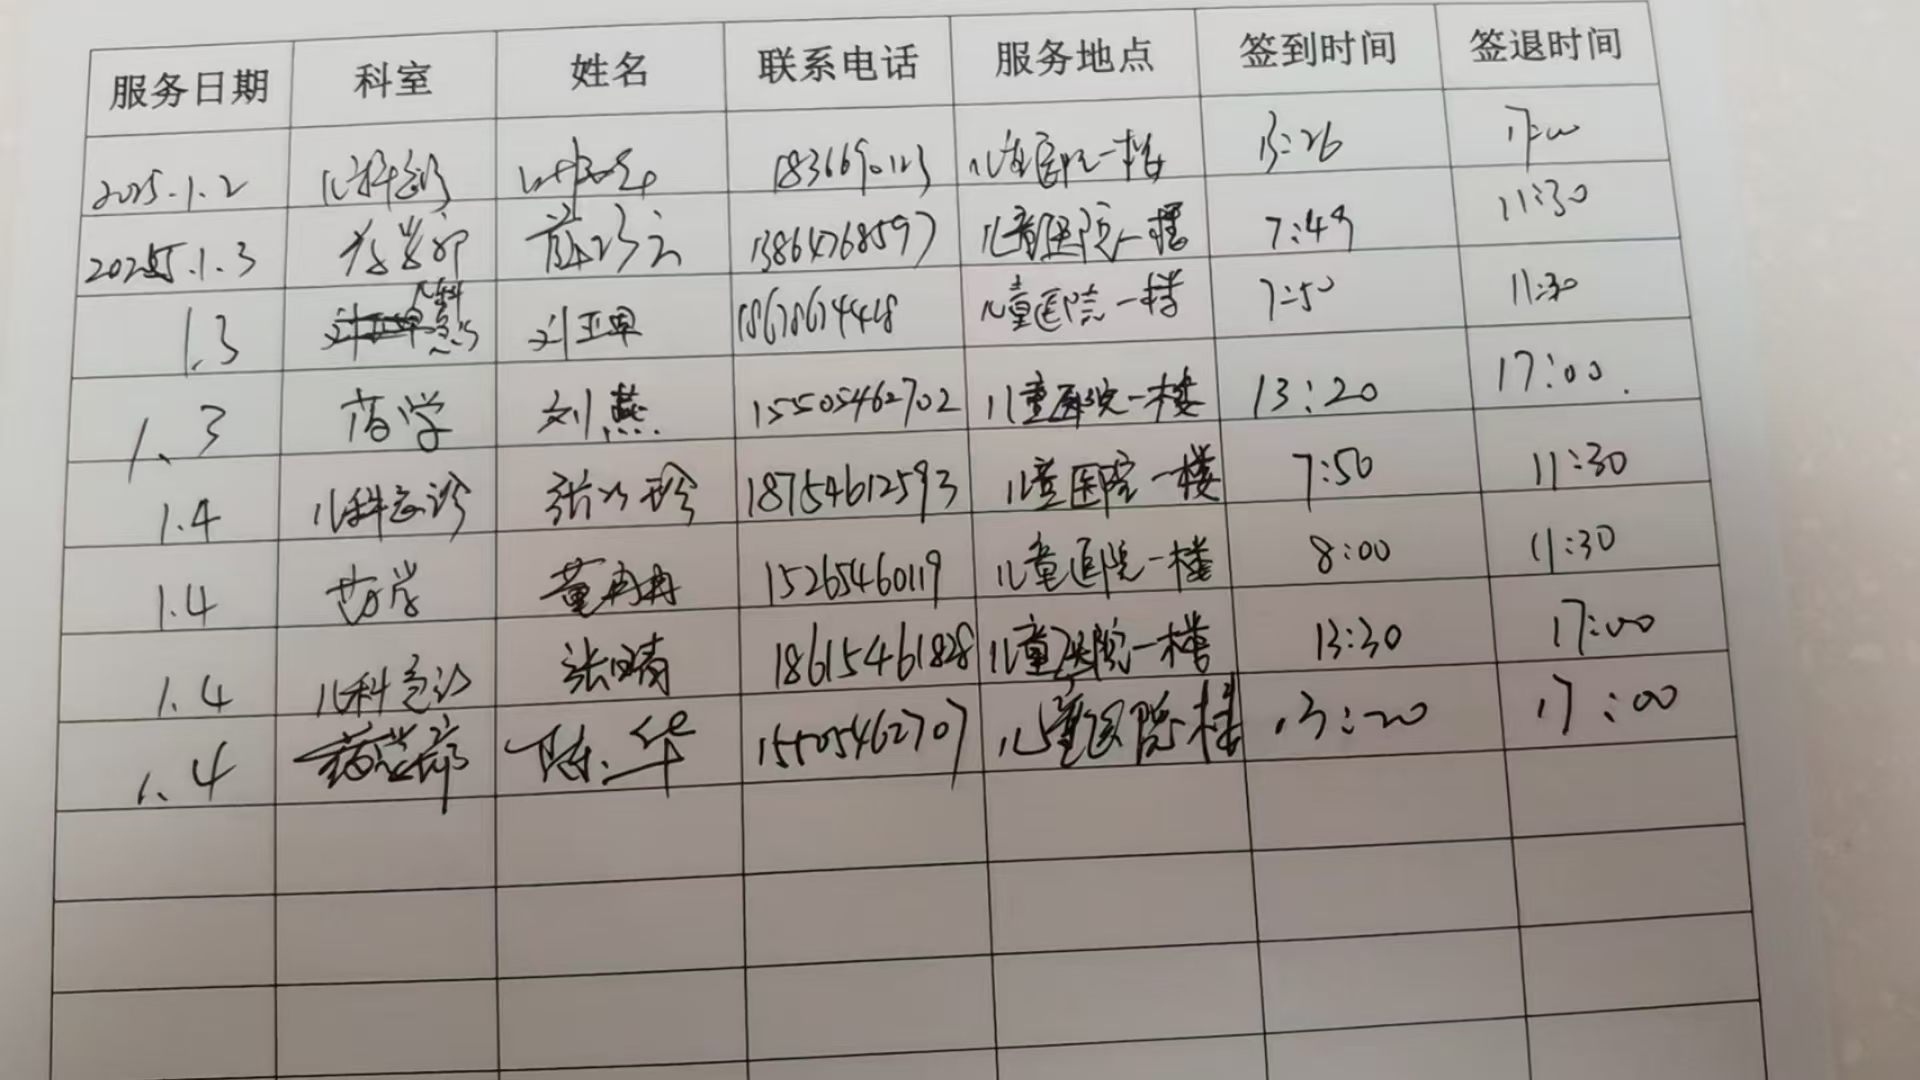 服务日期 科室 姓名 联系电话 服务地点 签到时间 签退时间
2025.1.2 儿科急诊 儿童医院一楼 13:26 17:00
2025.1.3 药学部 13864768597 儿童医院一楼 7:49 11:30
1.3 刘亚单 儿童医院一楼 7:50 11:30
1.3 药学 刘燕 15505462702 儿童医院一楼 13:20 17:00
1.4 儿科急诊 张以珍 18754612593 儿童医院一楼 7:50 11:30
1.4 药学 董冉冉 15265460119 儿童医院一楼 8:00 11:30
1.4 儿科急诊 张晴 18615461828 儿童医院一楼 13:30 17:00
1.4 药学部 陈华 15505462707 儿童医院一楼 13:20 17:00